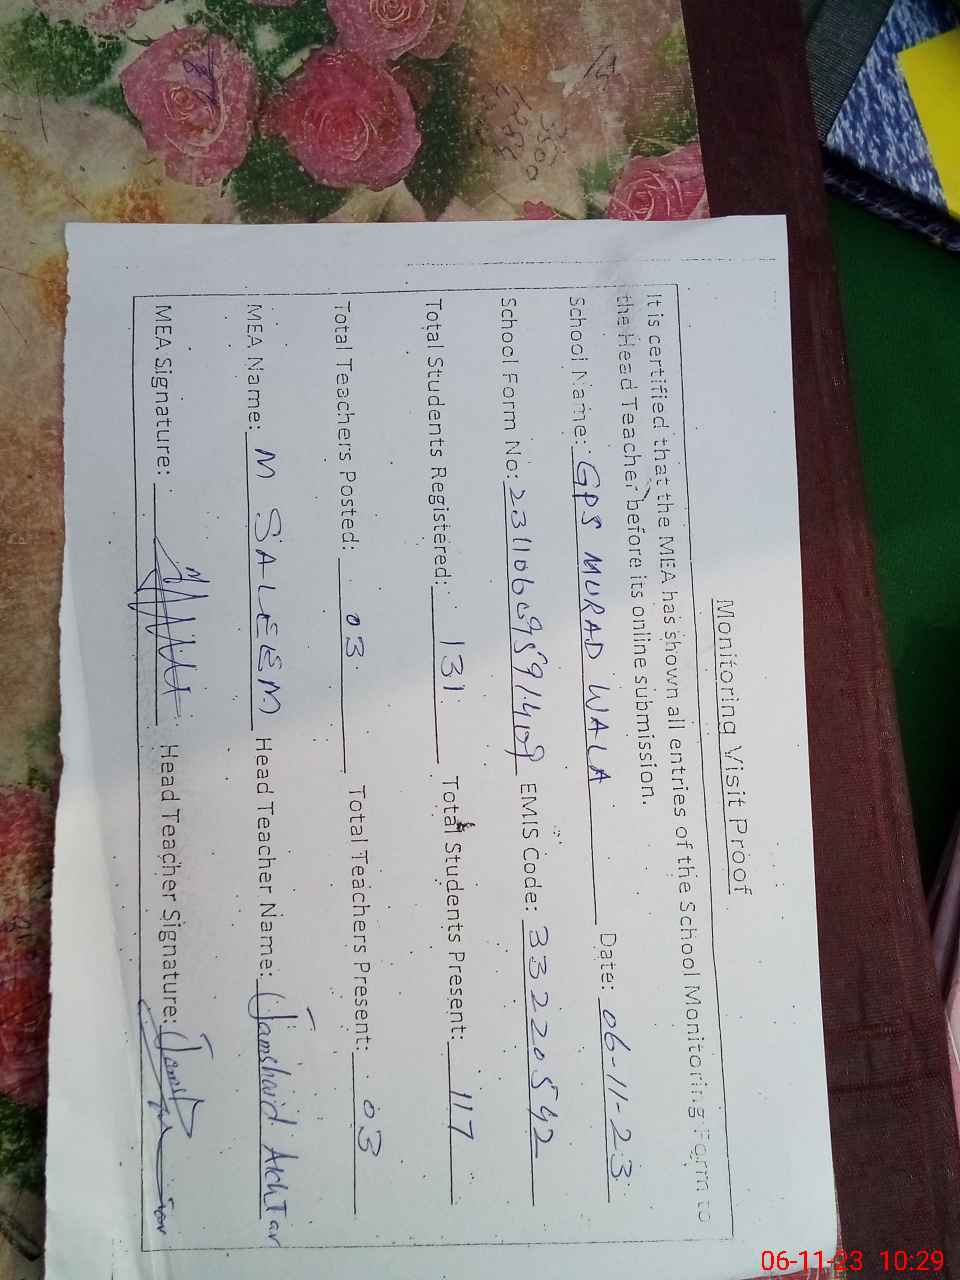 Monitoring Visit Proof
It is certified that the MEA has shown all entries of the School Monitoring Form to
the Head Teacher before its online submission.
School Name: GPS MURAD WALA Date: 06-11-23
School Form No: EMIS Code: 33220542
Total Students Registered: 131 Total Students Present: 117
Total Teachers Posted: 03 Total Teachers Present: 03
MEA Name: M SALEEM Head Teacher Name: Jamshaid Akhtar
MEA Signature: Head Teacher Signature:
06-11-23 10:29